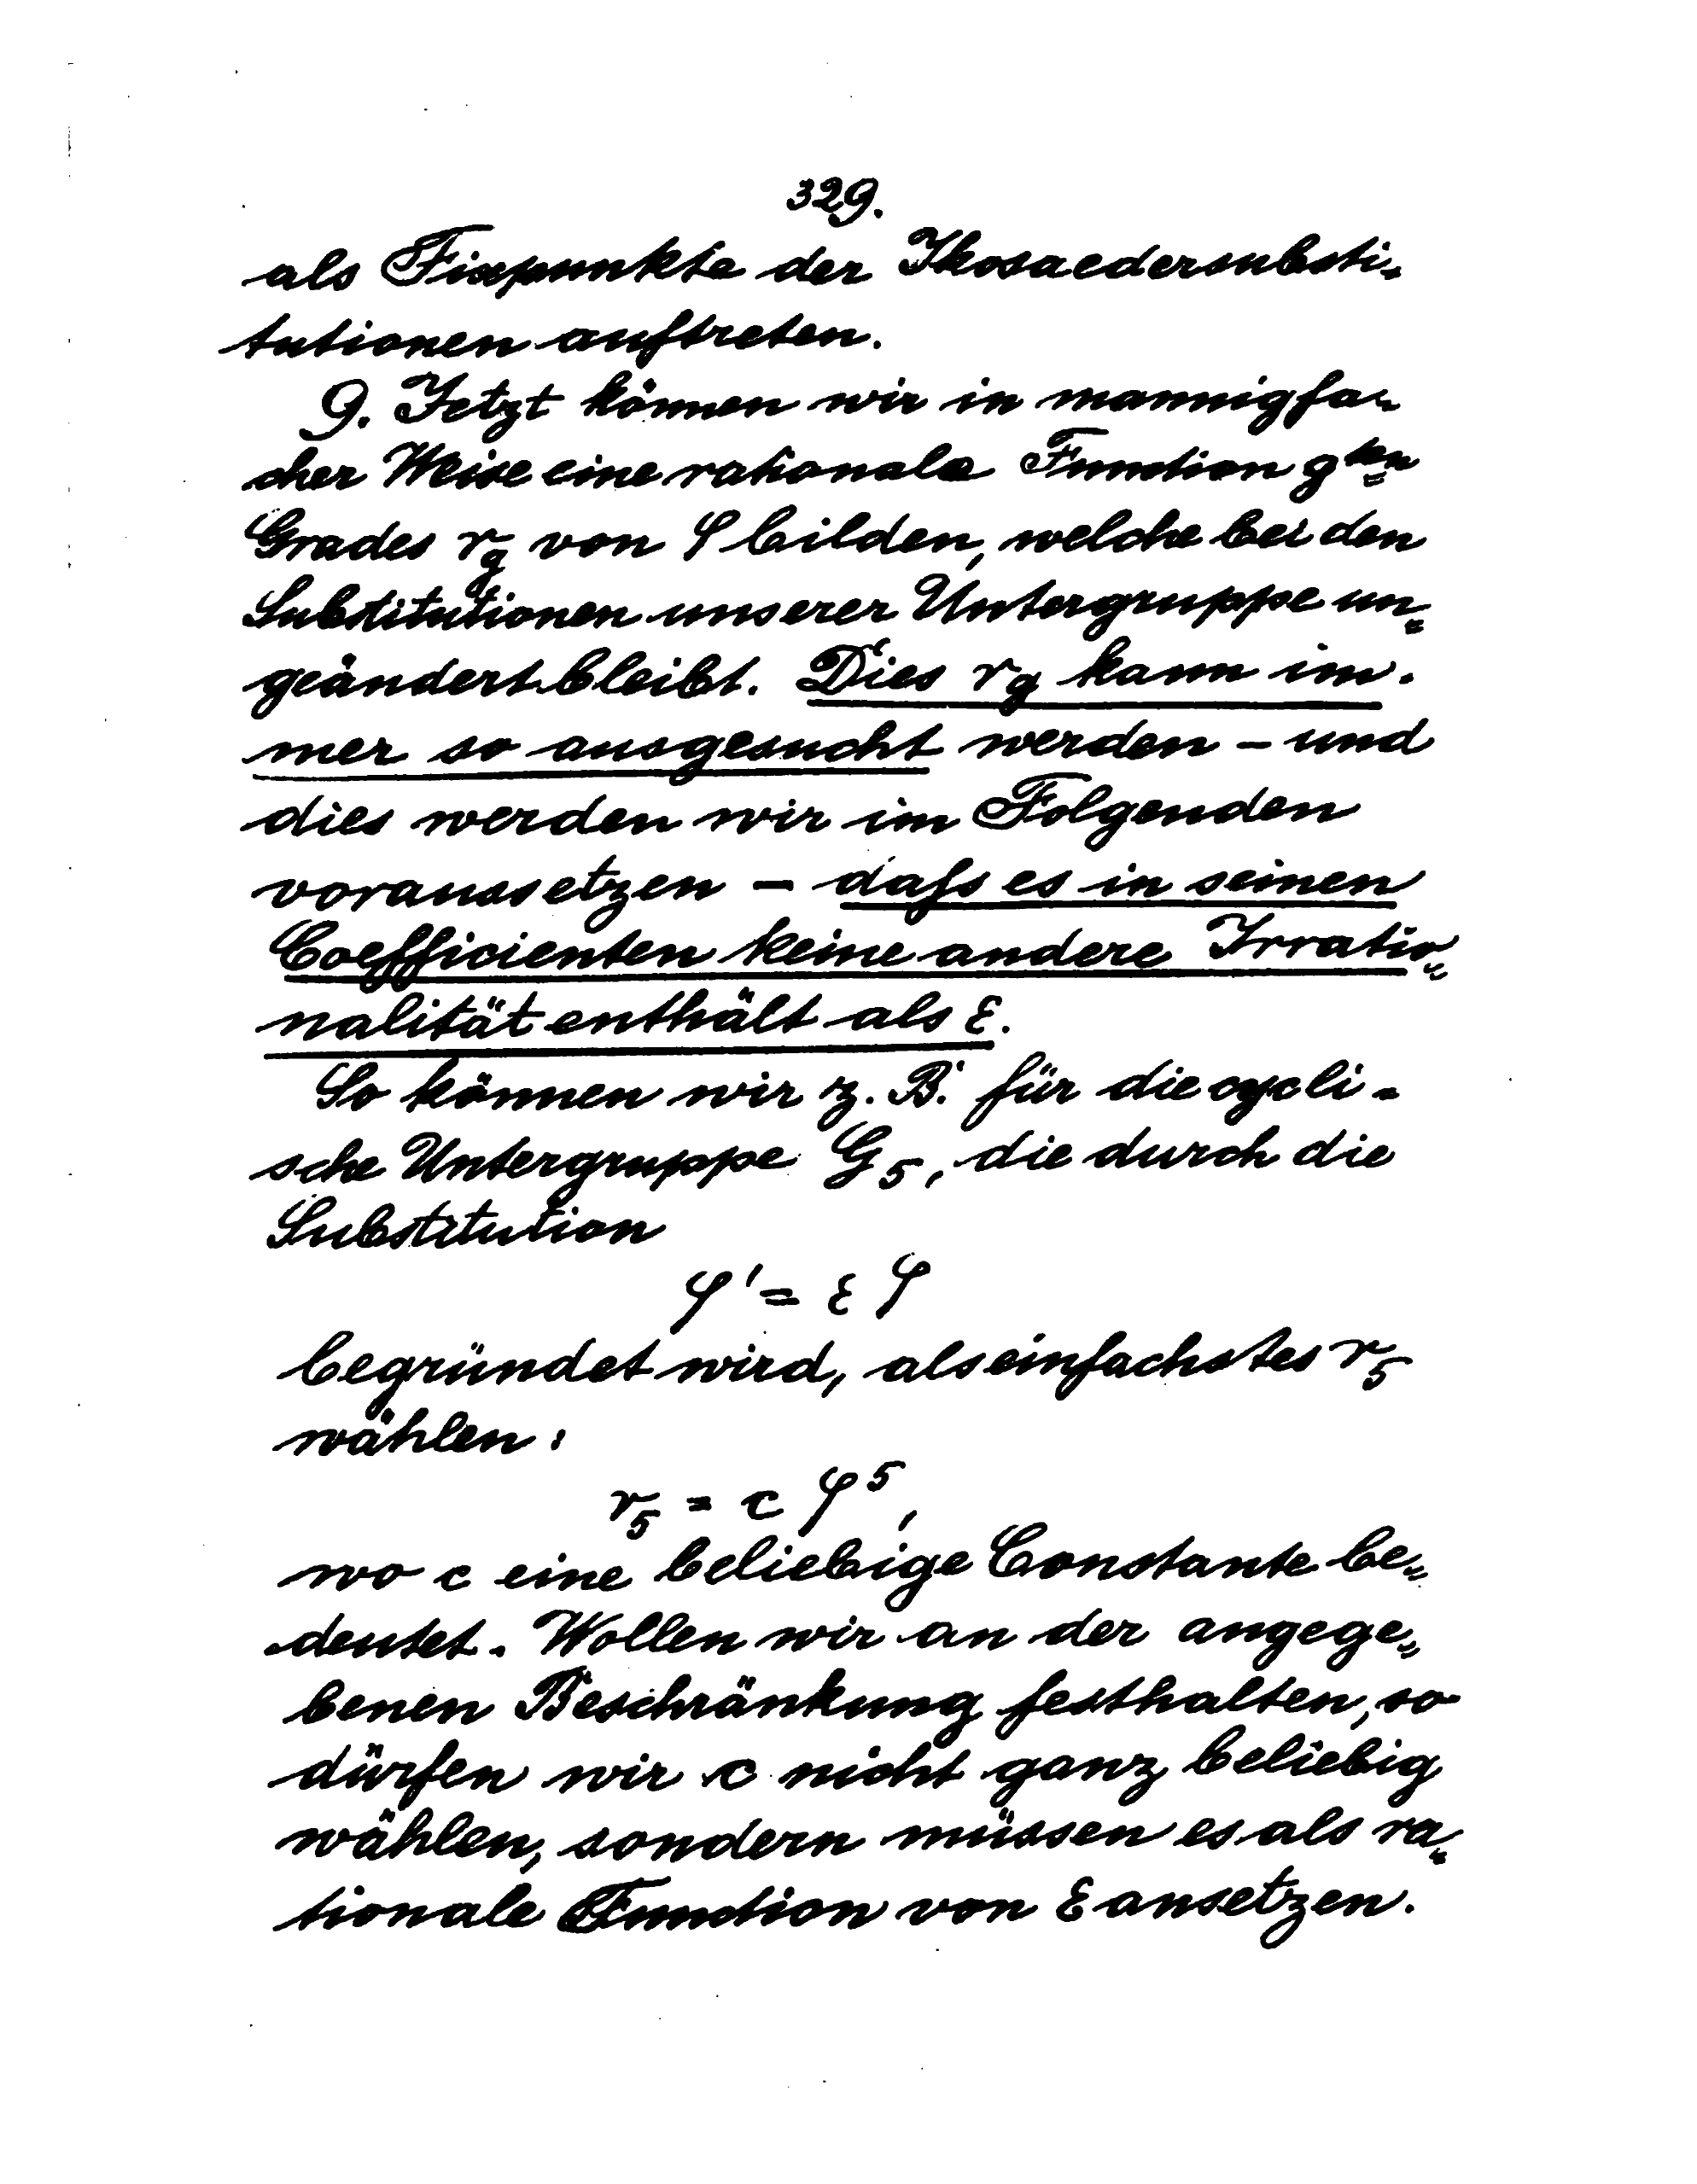 329.
als Fixpunkte der Ikosaedersubsti-
tutionen auftreten.
9. Jetzt können wir in mannigfa-
cher Weise eine rationale Function g ten
Grades r_g von φ bilden, welche bei den
Substitutionen unserer Untergruppe un-
geändert bleibt. Dies r_g kann im-
mer so ausgesucht werden – und
dies werden wir im Folgenden
voraussetzen – dass es in seinen
Coefficienten keine andere Irratio-
nalität enthält als ε.
So können wir z. B. für die cycli-
sche Untergruppe G₅, die durch die
Substitution
φ' = ε φ
begründet wird, als einfachstes r₅
wählen:
r₅ = c φ⁵,
wo c eine beliebige Constante be-
deutet. Wollen wir an der angege-
benen Beschränkung festhalten, so
dürfen wir c nicht ganz beliebig
wählen, sondern müssen es als ra-
tionale Function von ε ansetzen.